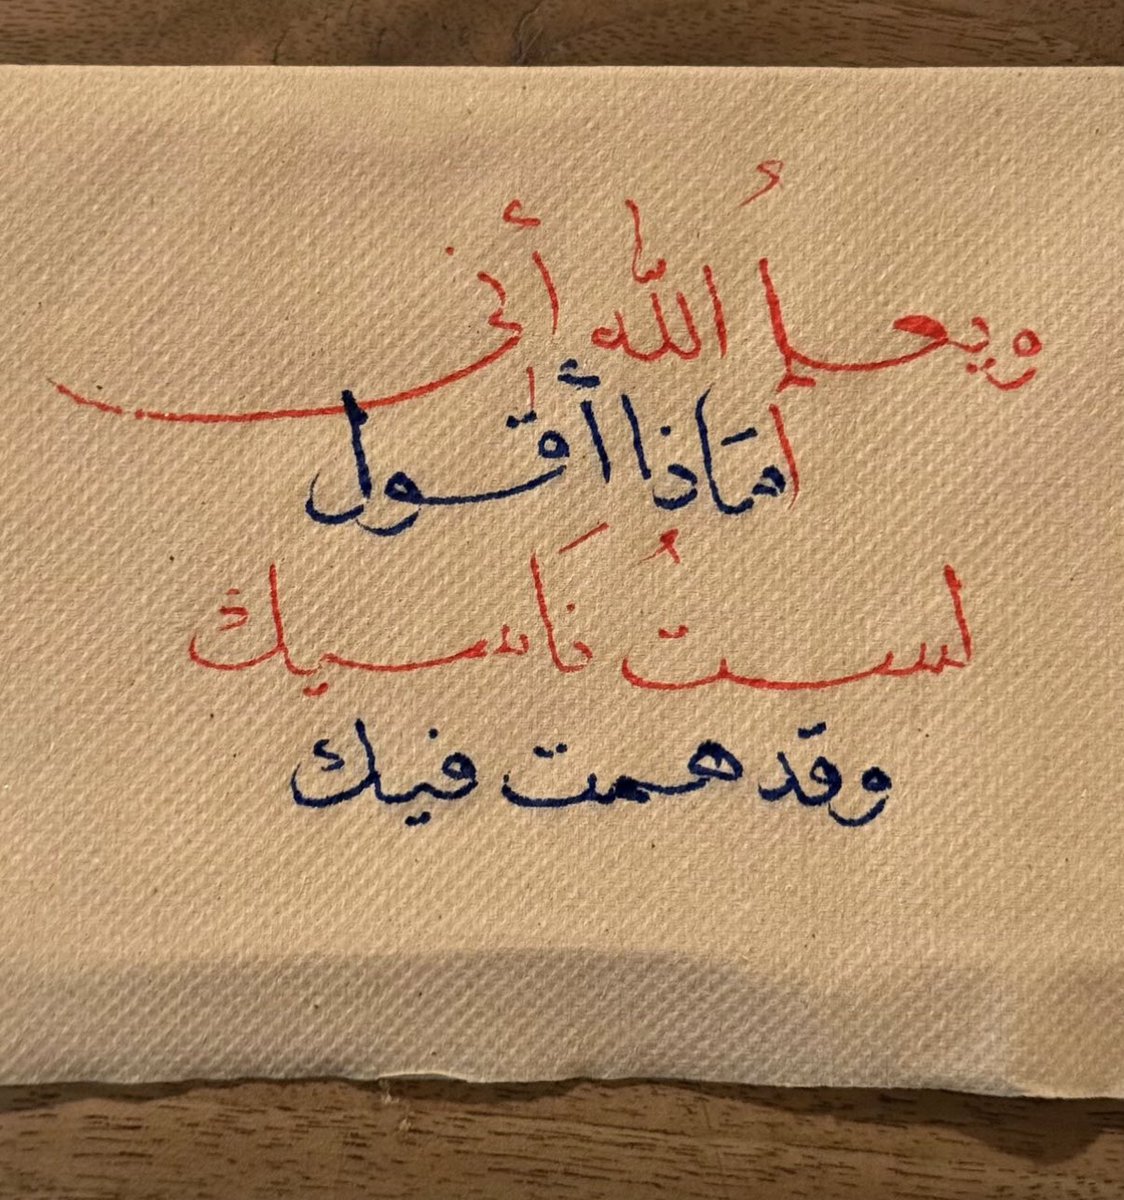 ويعلمُ اللّٰه أني
أمَاذا أقول
لستُ نَاسيك
وقد همت فيك